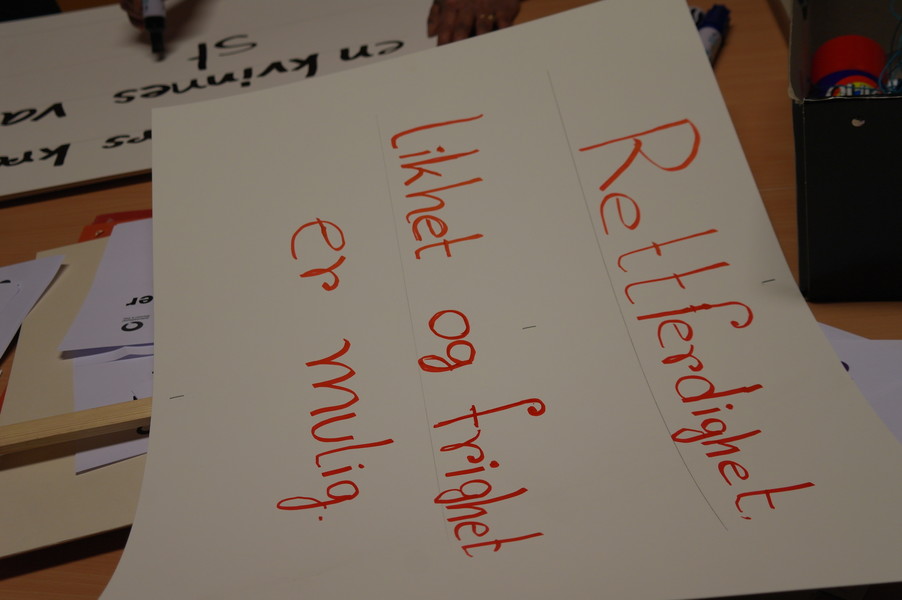 Rettferdighet,
Likhet og frighet
er mulig.
en kvinnes
st
va
rs kra
er